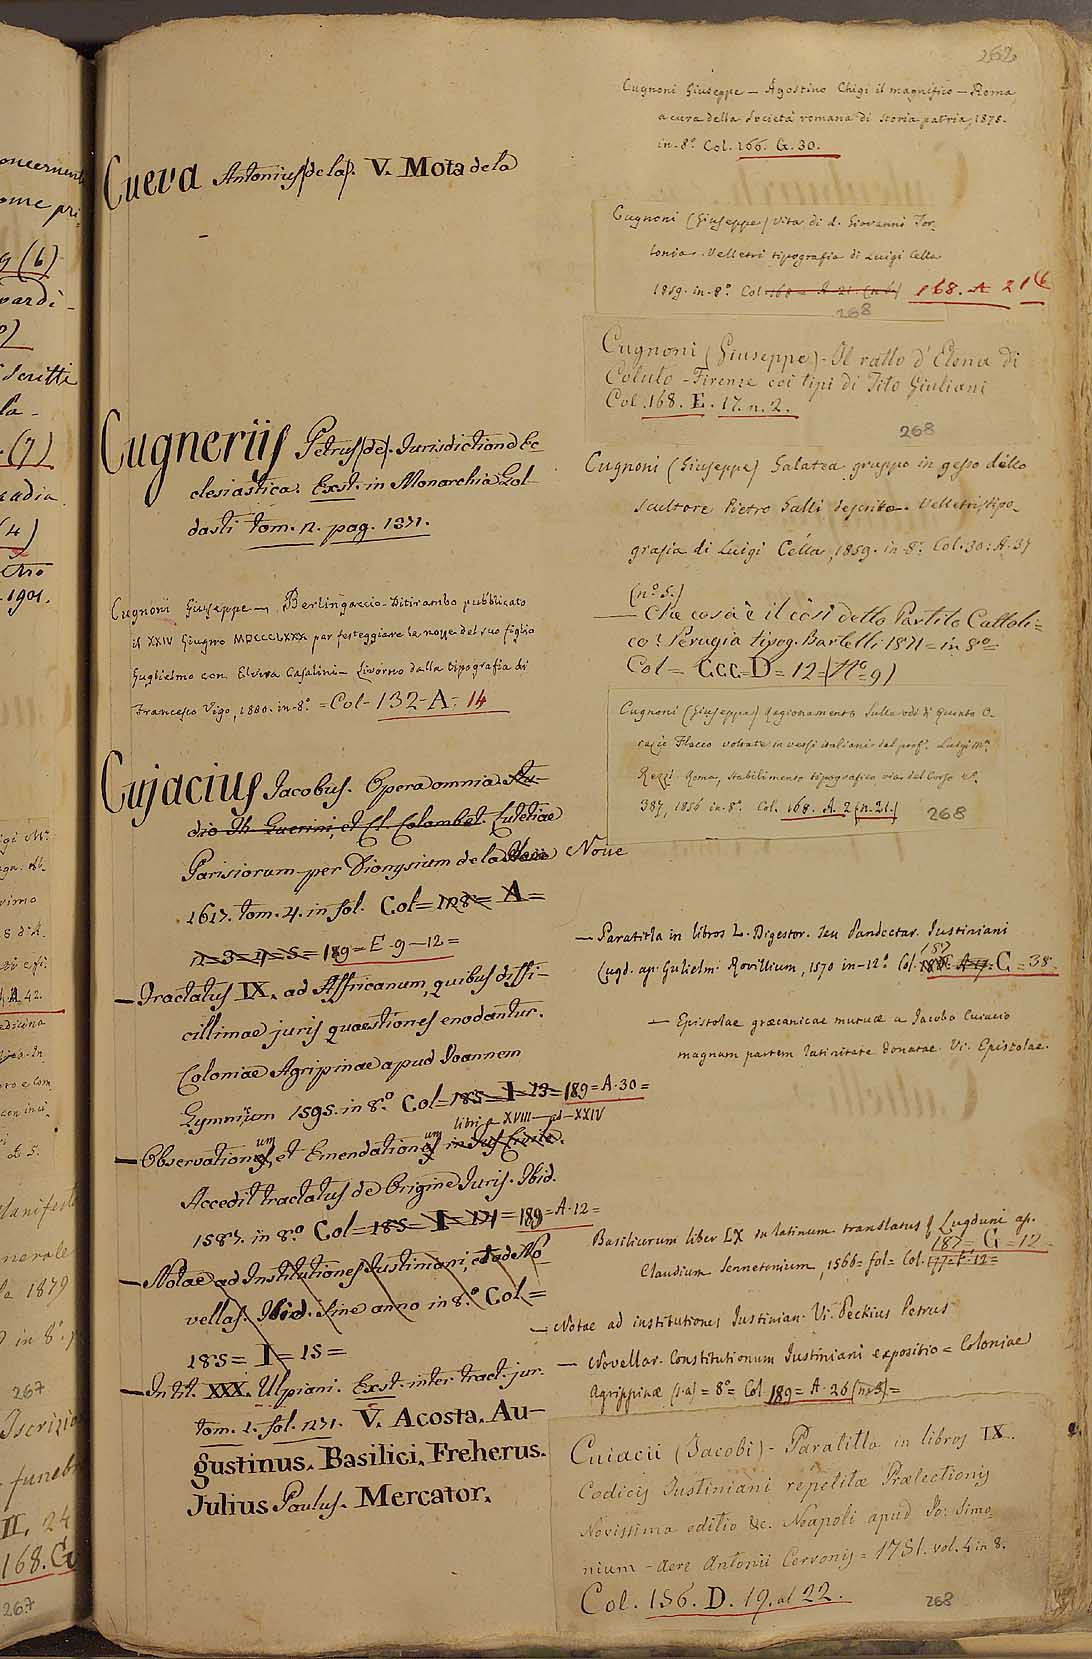 262
Cueva Antonius (de la). V. Mota de la
Cugneriis Petrus (de). Jurisdictiond Ec-
clesiastica. Exst. in Monarchia Gol-
dasti tom. 2. pag. 1371.
Cugnoni Giuseppe — Berlingaccio - Ditirambo pubblicato
il XXIV Giugno MDCCCLXXX per festeggiare le nozze del suo figlio
Guglielmo con Elvira Casalini — Livorno dalla tipografia di
Francesco Vigo, 1880. in-8º. = Col - 132 - A - 14
Cujacius Jacobus. Opera omnia Stu-
dio Th. Guerini, et Cl. Colombet. Lutetiae
Parisiorum per Dionysium de la Noue
1617. tom. 4. in fol. Col = A =
2 = 3 = 4 = 5 = 189 = E - 9 — 12 =
— Tractatus IX. ad Affricanum, quibus diffi-
cillimae juris quaestiones enodantur.
Coloniae Agripinae apud Joannem
Gymnium 1595. in 8º. Col = 185 = I = 13 = 189 = A. 30 =
libri a XVIII — ad — XXIV
— Observationum, et Emendationum in Jus Civile.
Accedit tractatus de Origine Juris. Ibid.
1587. in 8º. Col = 185 = I = 189 = A - 12 =
— Notae ad Institutiones Justiniani, et ad No-
vellas. Ibid. sine anno in 8º. Col =
185 = I = 15 =
— In tit. XXX. Ulpiani. Exst. inter tract. jur.
tom. 1. fol. 1231. V. Acosta. Au-
gustinus. Basilici. Freherus.
Julius Paulus. Mercator.
Cugnoni Giuseppe — Agostino Chigi il magnifico — Roma,
a cura della Società romana di storia patria, 1878.
in-8º. Col. 166. G. 30.
Cugnoni (Giuseppe) Vita di d. Giovanni Tor-
lonia. Velletri tipografia di Luigi Cella
1859. in-8º. Col. 168 = A 21. (n. 6) 168. A 21 (6
268
Cugnoni (Giuseppe) - Il ratto d'Elena di
Coluto - Firenze coi tipi di Tito Giuliani
Col. 168. E. 17. n. 2.
268
Cugnoni (Giuseppe) Galatea gruppo in gesso dello
scultore Pietro Galli descritto. Velletri, tipo-
grafia di Luigi Cella, 1859. in-8º. Col. 30: A. 37
(nº. 5.)
— Che cosa è il così detto Partito Cattoli=
co? Perugia tipog. Bartelli 1871 = in 8º =
Col = CCC = D = 12 = (Nº = 9)
Cugnoni (Giuseppe) Ragionamento sulle odi di Quinto O-
razio Flacco voltate in versi italiani dal prof. Luigi Mª.
Rezzi. Roma, stabilimento tipografico via del Corso Nº.
387, 1856 in-8º. Col. 168. A. 2 (n. 21.)
268
— Paratitla in libros L. Digestor. seu Pandectar. Justiniani
Lugd. ap. Gulielm. Rovillium, 1570 in-12º. Col. 187 G = 38.
— Epistolae graecanicae mutuae a Jacobo Cuiacio
magnam partem latinitate donatae. Vi. Epistolae.
Basilicorum liber LX in latinum translatus; Lugduni ap.
187 = G = 12 =
Claudium Sennetonium, 1566 = fol = Col. 177 = F. 12 =
— Notae ad institutiones Justinian. Vi. Peckius Petrus
— Novellar. Constitutionum Justiniani expositio = Coloniae
Agrippinae (s.a) = 8º = Col. 189 = A. 26 (n. 3) =
Cuiacii (Jacobi) - Paratitla in libros IX.
Codicis Justiniani repetitæ Prælectionis
Novissima editio &c. Neapoli apud Jo: Simo-
nium - aere Antonii Cervonis = 1781. vol. 4 in 8.
Col. 156. D. 19. al 22.
268